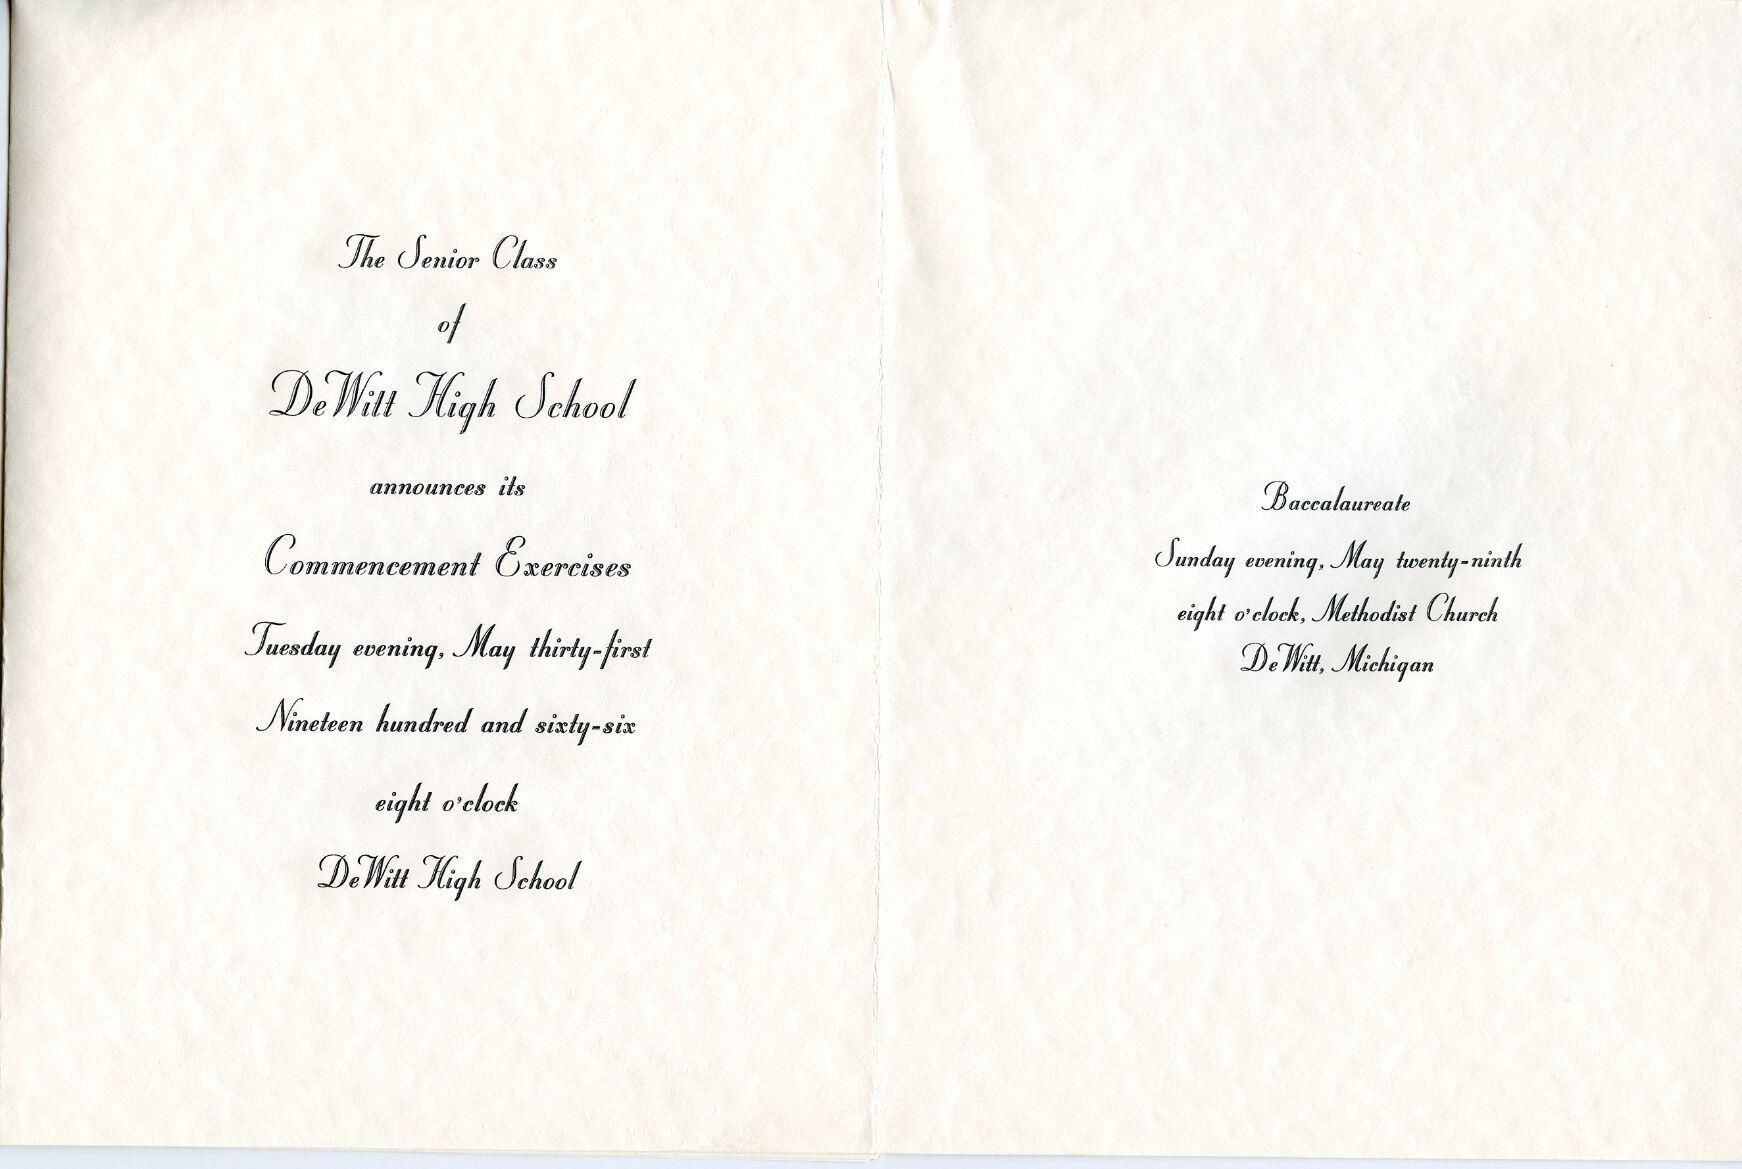 The Senior Class
of
DeWitt High School
announces its
Commencement Exercises
Tuesday evening, May thirty-first
Nineteen hundred and sixty-six
eight o'clock
DeWitt High School
Baccalaureate
Sunday evening, May twenty-ninth
eight o'clock, Methodist Church
DeWitt, Michigan